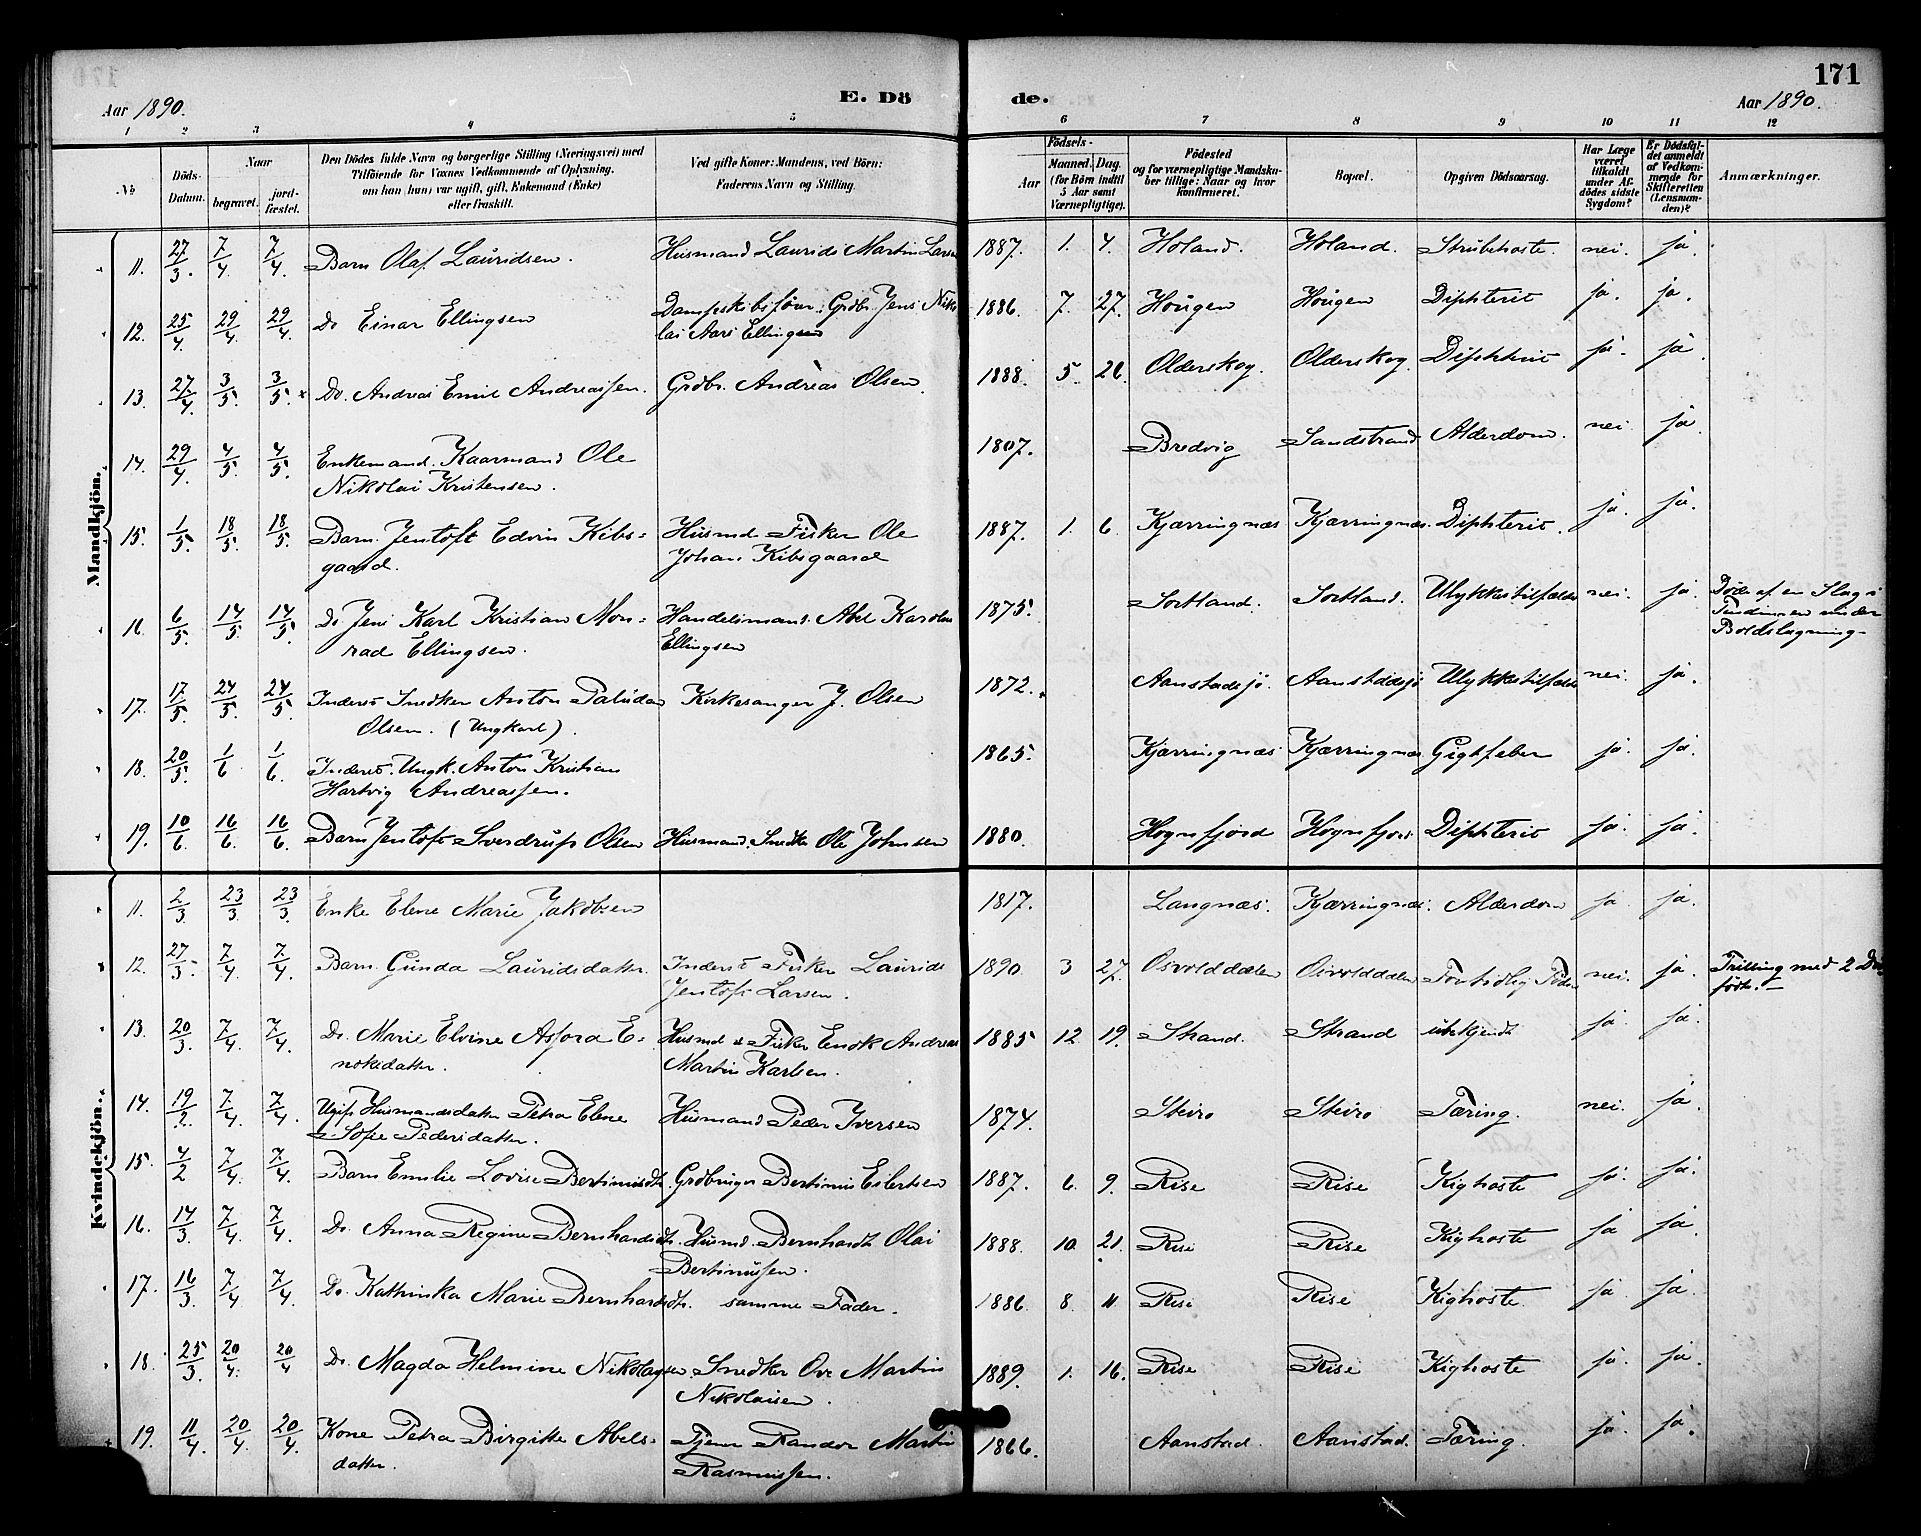 171
Aar 1890.
E. Dö
de.
Aar 1890.
1 2 3 4 5 6 7 8 9 10 11 12
No
Döds-Datum.
Naar
begravet.
jord-fæstet.
Den Dödes fulde Navn og borgerlige Stilling (Næringsvei) med
Tilföiende for Voxnes Vedkommende af Oplysning,
om han (hun) var ugift, gift, Enkemand (Enke)
eller fraskilt.
Ved gifte Koner: Mandens, ved Börn:
Faderens Navn og Stilling.
Födsels-
Aar
Maaned. Dag.
(for Börn indtil
5 Aar samt
Værnepligtige).
Födested
og for værnepligtige Mandskaber tillige: Naar og hvor
konfirmeret.
Bopæl.
Opgiven Dödsaarsag.
Har Læge
været
tilkaldt
under Afdödes sidste
Sygdom?
Er Dödsfaldet anmeldt
af Vedkommende for
Skifteretten
(Lensmanden)?
Anmærkninger.
Mandkjön.
11. 27/3. 7/4. 7/4. Barn Olaf Lauridsen. Husmand Laurids Martin Larsen 1887. 1. 4. Holand. Holand. Strubehoste nei. ja.
12. 25/4. 29/4. 29/4. Do Einar Ellingsen Dampskibsförer, Grdbr. Jens Niko
lai Aars Ellingsen 1886. 7. 27. Hougen Hougen Diphterit ja. ja.
13. 27/4. 3/5. 3/5. x Do. Andreas Emil Andreassen. Grdbr. Andreas Olsen 1888. 5. 26. Olderskog. Olderskog. Diphterit ja. ja.
14. 29/4. 4/5. 4/5. Enkemand. Kaarmand Ole
Nikolai Kristensen. 1807. Bredvig Sandstrand Alderdom. nei. ja.
15. 1/5. 18/5. 18/5. Barn Jentoft Edvin Kibs=
gaard. Husmd Fisker Ole
Johan Kibsgaard 1887. 1. 6. Kjærringnæs Kjærringnæs. Diphterit. ja. ja.
16. 6/5. 14/5. 14/5. Do Jens Karl Kristian Mon=
rad Ellingsen. Handelsmand. Abel Karolus
Ellingsen 1875. Sortland. Sortland. Ulykkestilfælde nei. ja. Döde af en Slag i
Tindingen under
Boldslagning-
17. 17/5. 24/5. 24/5. Inderst Snedker Anton Paludan
Olsen. (Ungkarl). Kirkesanger J. Olsen 1872. Aanstadsjö. Aanstadsjö Ulykkestilfælde nei. ja.
18. 20/5. 1/6 1/6. Inderst. Ungk. Anton Kristian
Hartvig Andreassen. 1865. Kjærringnæs Kjærringnæs Gigtfeber ja. ja.
19. 10/6. 16/6. 16/6. Barn Jentoft Sverdrup Olsen Husmand. Snedker Ole Johnsen 1880. Hognfjord Hognfjord Diphterit ja. ja.
Kvindekjön.
11. 2/3. 23/3. 23/3. Enke Elene Marie Jakobsen 1817. Langnæs. Kjærringnæs. Alderdom ja. ja.
12. 27/3. 7/4. 7/4. Barn. Gunda Lauridsdatter. Inderst Fisker Laurids
Jentoft Larsen. 1890 3 27. Osvolddalen Osvolddalen For tidlig Födsel nei. ja. Trilling med 2 Död
födte.-
13. 20/3. 7/4. 7/4. Do. Marie Elvine Asfora E=
noksdatter. Husmd & Fisker Enok Andreas
Martin Karlsen. 1885 12 19. Strand. Strand ubekjendt ja. ja.
14. 19/2. 7/4. 7/4. Ugift Husmandsdatter Petra Elene
Sofie Pedersdatter. Husmand Peder Iversen 1874. Steiro Steiro Tæring. nei. ja.
15. 4/2 7/4. 7/4. Barn Emilie Lovise Bertinusdtr. Grdbruger Bertinus Eilertsen 1887. 6. 9. Rise Rise Kighoste ja. ja.
16. 14/3. 7/4. 7/4. Do. Anna Regine Bernhardsdtr. Husmd. Bernhardt Olai
Bertinussen. 1888. 10. 21. Rise Rise Kighoste ja ja.
17. 16/3. 7/4 7/4. Do. Kathinka Marie Bernhardsdtr. samme Fader. 1886 8. 11. Rise Rise Kighoste. ja. ja.
18. 25/3. 20/4. 20/4 Do. Magda Helmine Nikolaysen Snedker Ove Martin
Nikolaisen. 1889. 1. 16. Rise Rise Kighoste ja. ja.
19. 11/4. 20/4. 20/4. Kone Petra Birgitte Abels=
datter. Tjener Randor Martin
Rasmussen. 1866. Aanstad. Aanstad. Tæring. ja. ja.